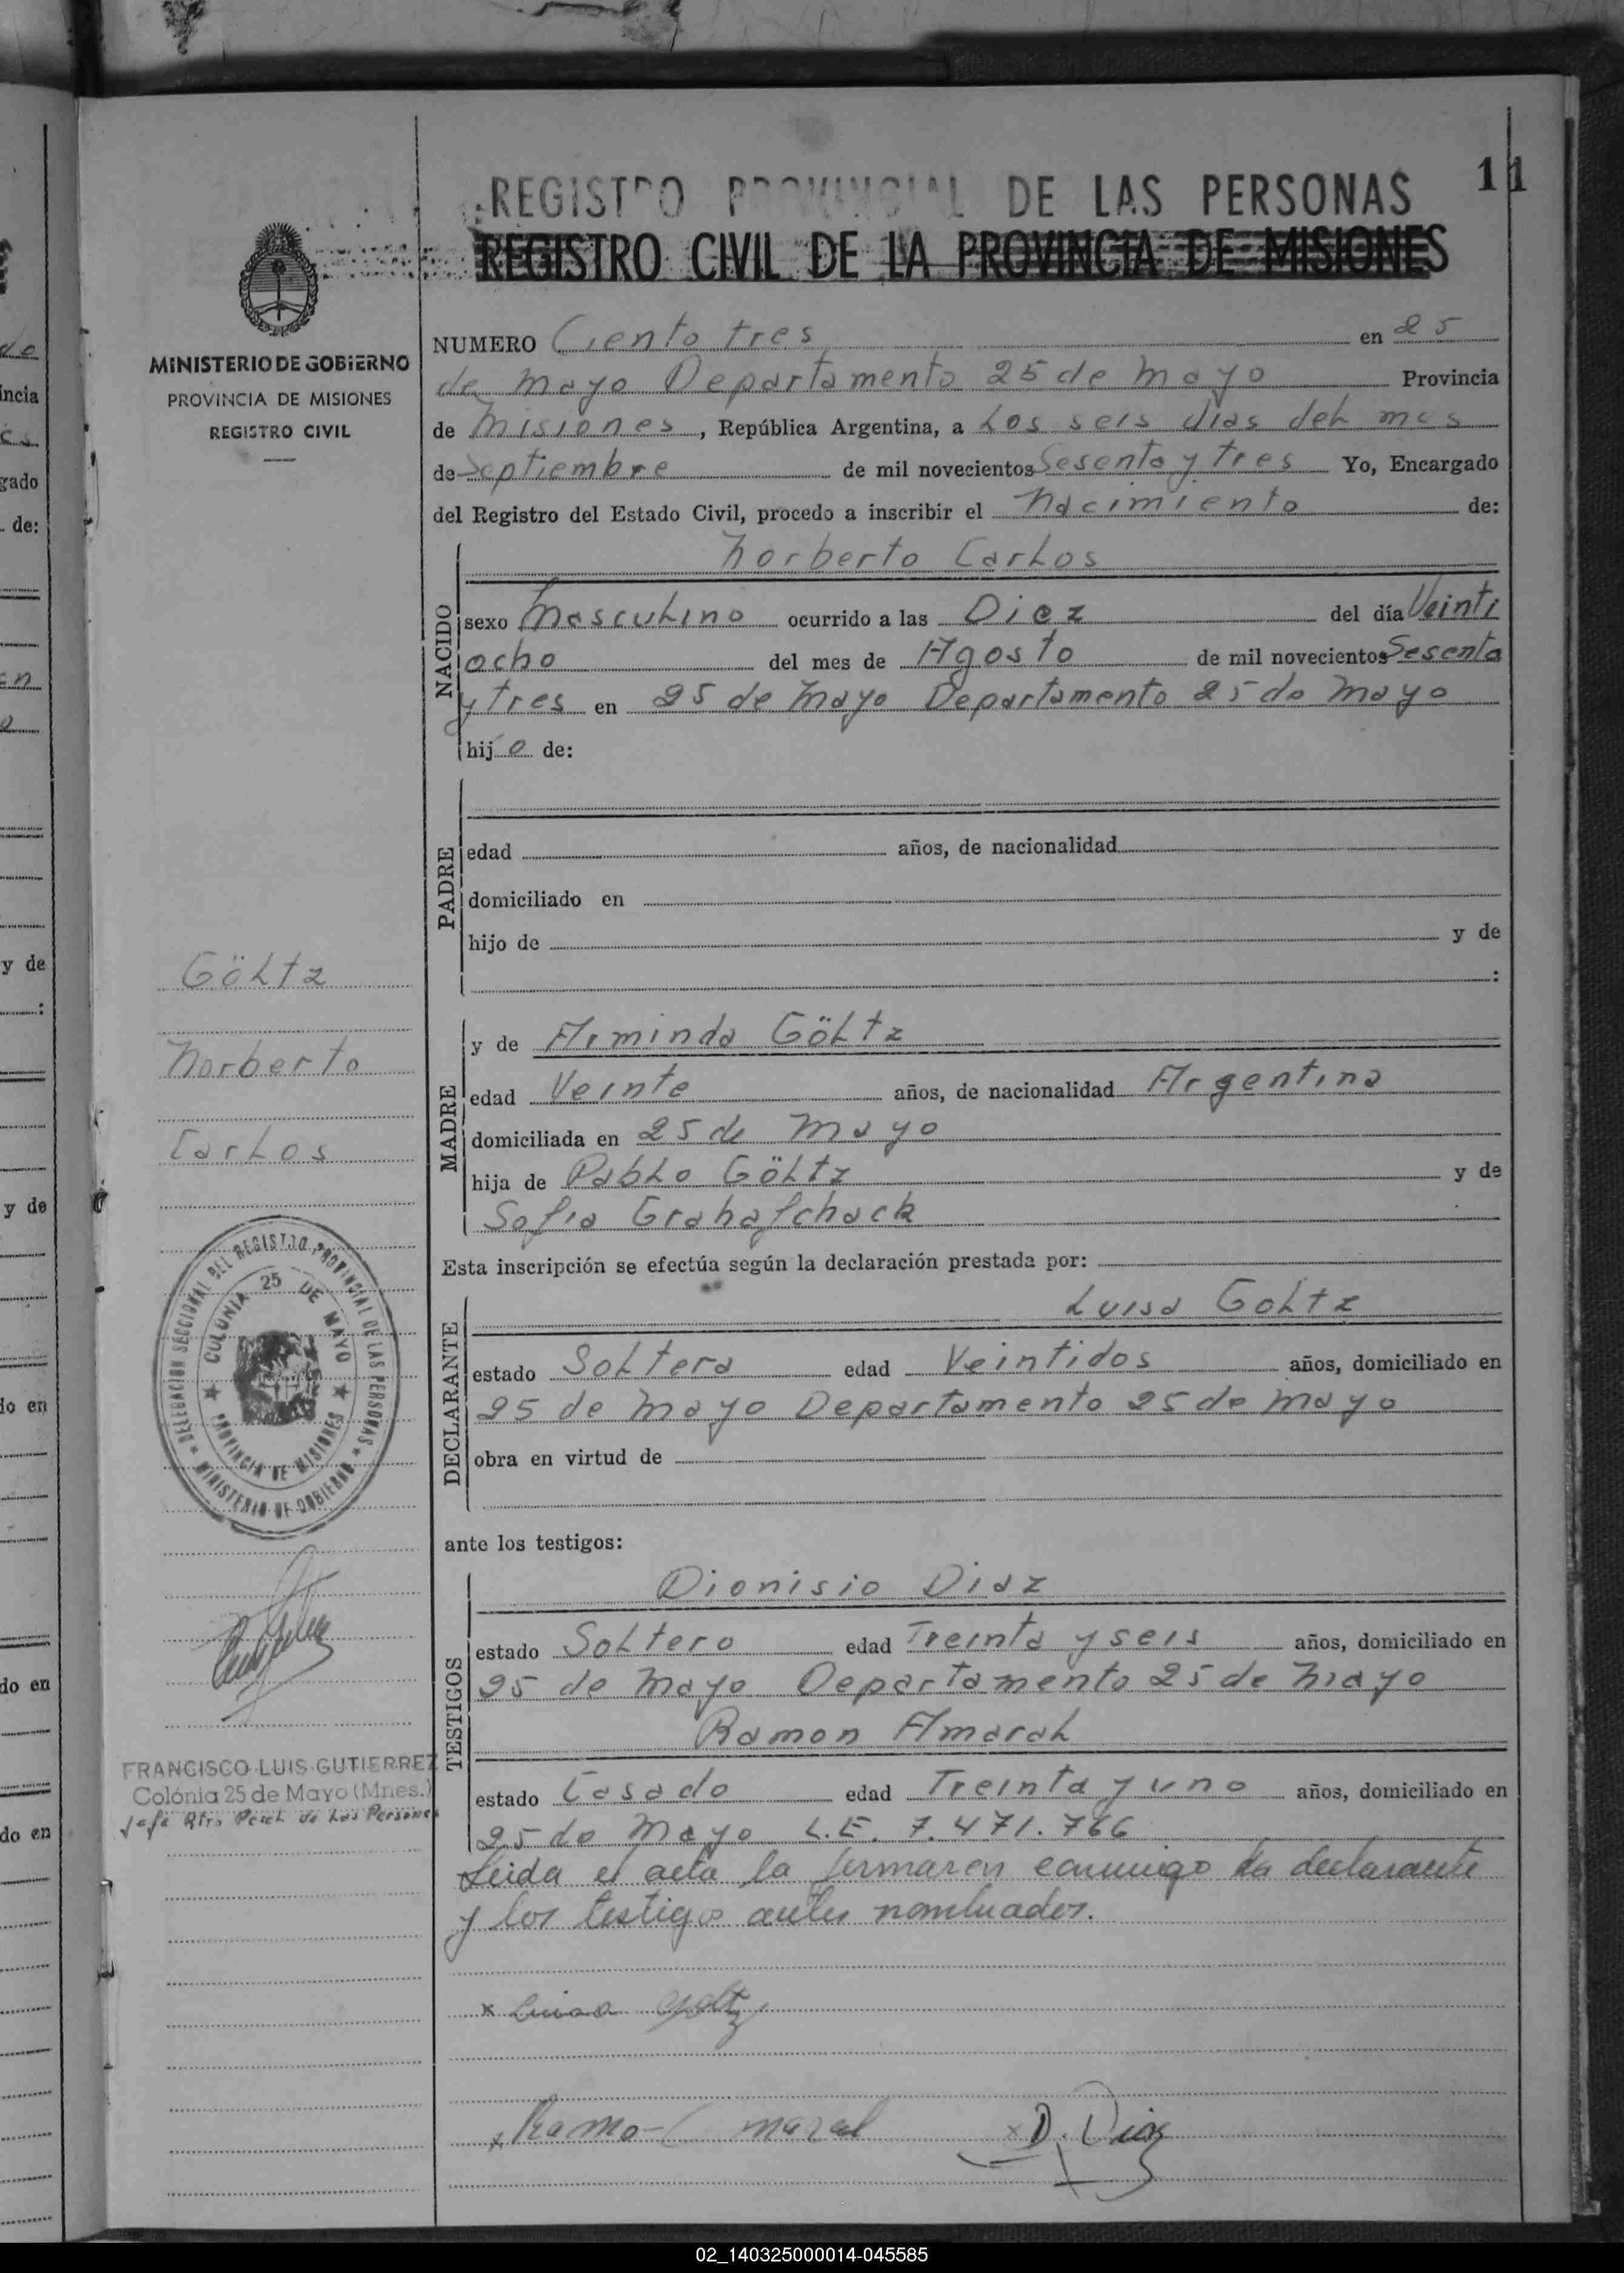 11
REGISTRO PROVINCIAL DE LAS PERSONAS
REGISTRO CIVIL DE LA PROVINCIA DE MISIONES
MINISTERIO DE GOBIERNO
PROVINCIA DE MISIONES
REGISTRO CIVIL
NUMERO Ciento tres en 25
de Mayo Departamento 25 de Mayo Provincia
de Misiones, República Argentina, a Los seis dias del mes
de Septiembre de mil novecientos Sesenta y tres Yo, Encargado
del Registro del Estado Civil, procedo a inscribir el Nacimiento de:
NACIDO
Norberto Carlos
sexo Masculino ocurrido a las Diez del día Veinti
ocho del mes de Agosto de mil novecientos Sesenta
y tres en 25 de Mayo Departamento 25 de Mayo
hijo de:
PADRE
edad años, de nacionalidad
domiciliado en
hijo de y de
:
MADRE
y de Arminda Göltz
edad Veinte años, de nacionalidad Argentina
domiciliada en 25 de Mayo
hija de Pablo Göltz y de
Sofia
Esta inscripción se efectúa según la declaración prestada por:
DECLARANTE
Luisa Goltz
estado Soltera edad Veintidos años, domiciliado en
25 de Mayo Departamento 25 de Mayo
obra en virtud de
ante los testigos:
TESTIGOS
Dionisio Diaz
estado Soltero edad Treinta y seis años, domiciliado en
25 de Mayo Departamento 25 de Mayo
Ramon Amaral
estado Casado edad Treinta y uno años, domiciliado en
25 de Mayo L.E. 7.471.766
Leida el acta la firmaron conmigo la declarante
y los testigos antes nombrados.
x Luisa Goltz
x D. Diaz
Göltz
Norberto
Carlos
DELEGACION SECCIONAL DEL REGISTRO PROVINCIAL DE LAS PERSONAS
MINISTERIO DE GOBIERNO
COLONIA 25 DE MAYO
PROVINCIA DE MISIONES
FRANCISCO LUIS GUTIERREZ
Colónia 25 de Mayo (Mnes.)
Jefe de Las Personas
de
incia
gado
de:
y de
:
y de
do en
do en
do en
02_140325000014-045585